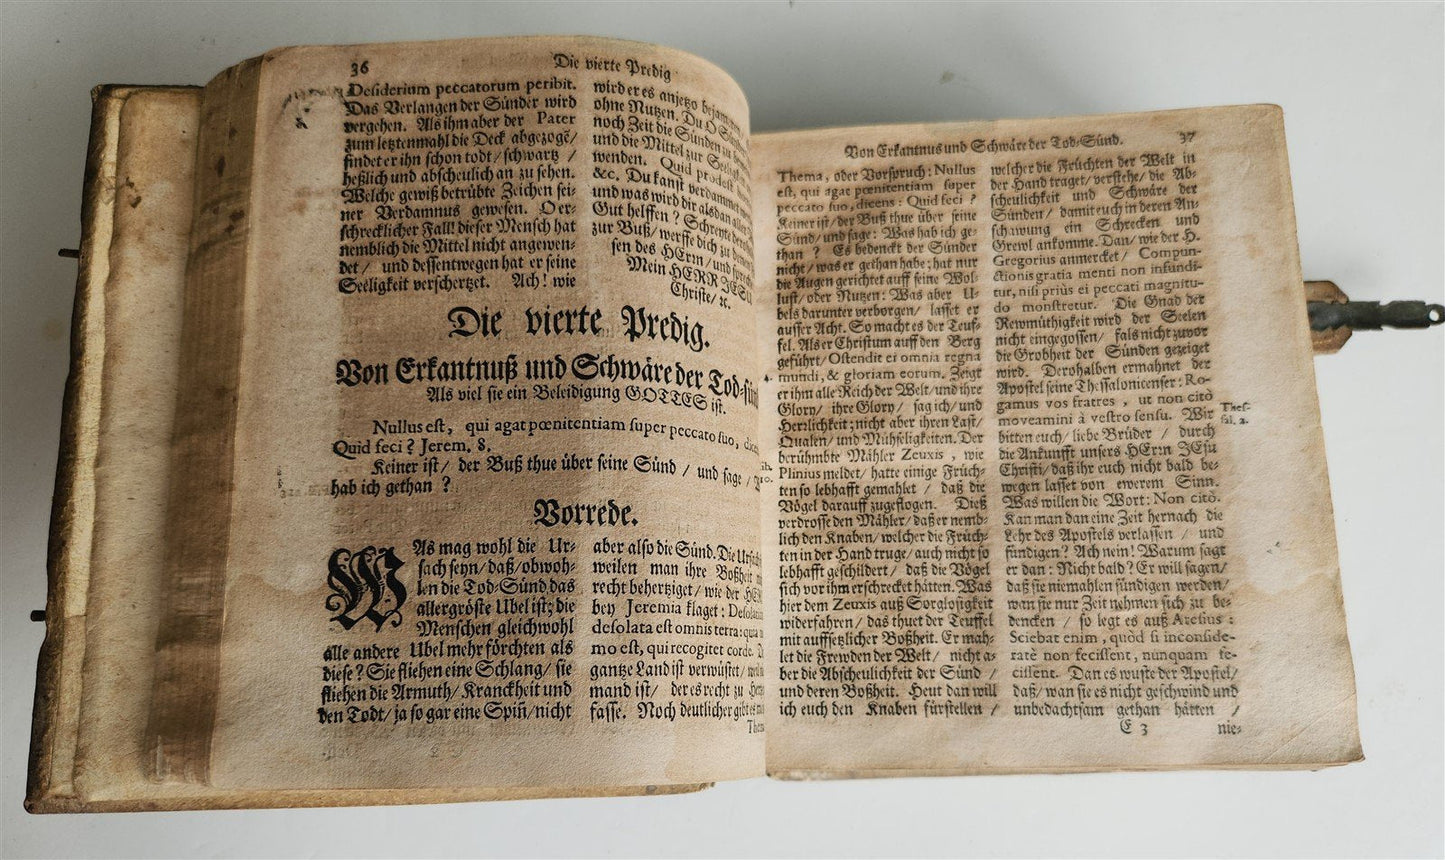 36
Die vierte Predig
Desiderium peccatorum peribit.
Das Verlangen der Sünder wird
vergehen. Als ihm aber der Pater
zum letztenmahl die Deck abgezogẽ/
findet er ihn schon todt/ schwartz /
heßlich und abscheulich an zu sehen.
Welche gewiß betrübte Zeichen sei-
ner Verdamnus gewesen. O er-
schrecklicher Fall! dieser Mensch hat
nemblich die Mittel nicht angewen-
det / und dessentwegen hat er seine
Seeligkeit verschertzet. Ach! wie
wird er es anjetzo
ohne Nutzen. Du O
noch Zeit die Sünden zu
und die Mittel zur
wenden. Quid prodest
&c. Du kanst verdammet
und was wird dir alsdan
Gut helffen? Schreye
zur Buß/ werffe dich zu
sen des HErrn / und
Mein HERR JESU
Christe/ ꝛc.
Die vierte Predig.
Von Erkantnuß und Schwäre der Tod-
Als viel sie ein Beleidigung GOTTES ist.
Nullus est, qui agat pœnitentiam super peccato suo,
Quid feci? Jerem. 8.
Keiner ist/ der Buß thue über seine Sünd / und sage /
hab ich gethan ?
Vorrede.
WAs mag wohl die Ur-
sach seyn/ daß/ obwoh-
len die Tod-Sünd das
allergröste Ubel ist; die
Menschen gleichwohl
alle andere Ubel mehr förchten als
diese? Sie fliehen eine Schlang/ sie
fliehen die Armuth/ Kranckheit und
den Todt/ ja so gar eine Spiñ/ nicht
aber also die Sünd. Die
weilen man ihre Boßheit
recht behertziget/ wie der
bey Jeremia klaget:
desolata est omnis terra: quia
mo est, qui recogitet corde.
gantze Land ist verwüstet/
mand ist/ der es recht zu
fasse. Noch deutlicher gibt
37
Von Erkantnus und Schwäre der Tod-Sünd.
Thema, oder Vorspruch: Nullus
est, qui agat pœnitentiam super
peccato suo, dicens: Quid feci ?
Keiner ist/ der Buß thue über seine
Sünd/ und sage: Was hab ich ge-
than ? Es bedenckt der Sünder
nicht/ was er gethan habe; hat nur
die Augen gerichtet auff seine Wol-
lust/ oder Nutzen: Was aber U-
bels darunter verborgen/ lasset er
ausser Acht. So macht es der Teuf-
fel. Als er Christum auff den Berg
geführt/ Ostendit ei omnia regna
mundi, & gloriam eorum. Zeigt
er ihm alle Reich der Welt/ und ihre
Glory/ ihre Glory/ sag ich/ und
Herrlichkeit; nicht aber ihren Last/
Qualen/ und Mühseligkeiten. Der
berühmbte Mähler Zeuxis , wie
Plinius meldet/ hatte einige Früch-
ten so lebhafft gemahlet / daß die
Vögel darauff zugeflogen. Dieß
verdrosse den Mähler/ daß er nemb-
lich den Knaben/ welcher die Früch-
ten in der Hand truge/ auch nicht so
lebhafft geschildert/ daß die Vögel
sich vor ihm erschrecket hätten. Was
hier dem Zeuxis auß Sorglosigkeit
widerfahren/ das thuet der Teuffel
mit auffsetzlicher Boßheit. Er mah-
let die Frewden der Welt/ nicht a-
ber die Abscheulichkeit der Sünd /
und deren Boßheit. Heut dan will
ich euch den Knaben fürstellen /
welcher die Früchten der Welt in
der Hand traget/ verstehe/ die Ab-
scheulichkeit und Schwäre der
Sünden/ damit euch in deren An-
schawung ein Schrecken und
Grewl ankomme. Dan/ wie der H.
Gregorius anmercket/ Compun-
ctionis gratia menti non infundi-
tur, nisi priùs ei peccati magnitu-
do monstretur. Die Gnad der
Rewmüthigkeit wird der Seelen
nicht eingegossen/ fals nicht zuvor
die Grobheit der Sünden gezeiget
wird. Derohalben ermahnet der
Apostel seine Thessalonicenser: Ro-
gamus vos fratres, ut non citò
moveamini à vestro sensu. Wir
bitten euch/ liebe Brüder / durch
die Ankunfft unsers HErrn JEsu
Christi/ daß ihr euch nicht bald be-
wegen lasset von ewerem Sinn.
Was willen die Wort: Non citò.
Kan man dan eine Zeit hernach die
Lehr des Apostels verlassen / und
sündigen? Ach nein! Warum sagt
er dan: Nicht bald? Er will sagen/
daß sie niemahlen sündigen werden/
wan sie nur Zeit nehmen sich zu be-
dencken / so legt es auß Aresius:
Sciebat enim, quòd si inconside-
ratè non fecissent, nunquam fe-
cissent. Dan es wuste der Apostel/
daß/ wan sie es nicht geschwind und
unbedachtsam gethan hätten /
Thes-
sal. 2.
E 3
nie-